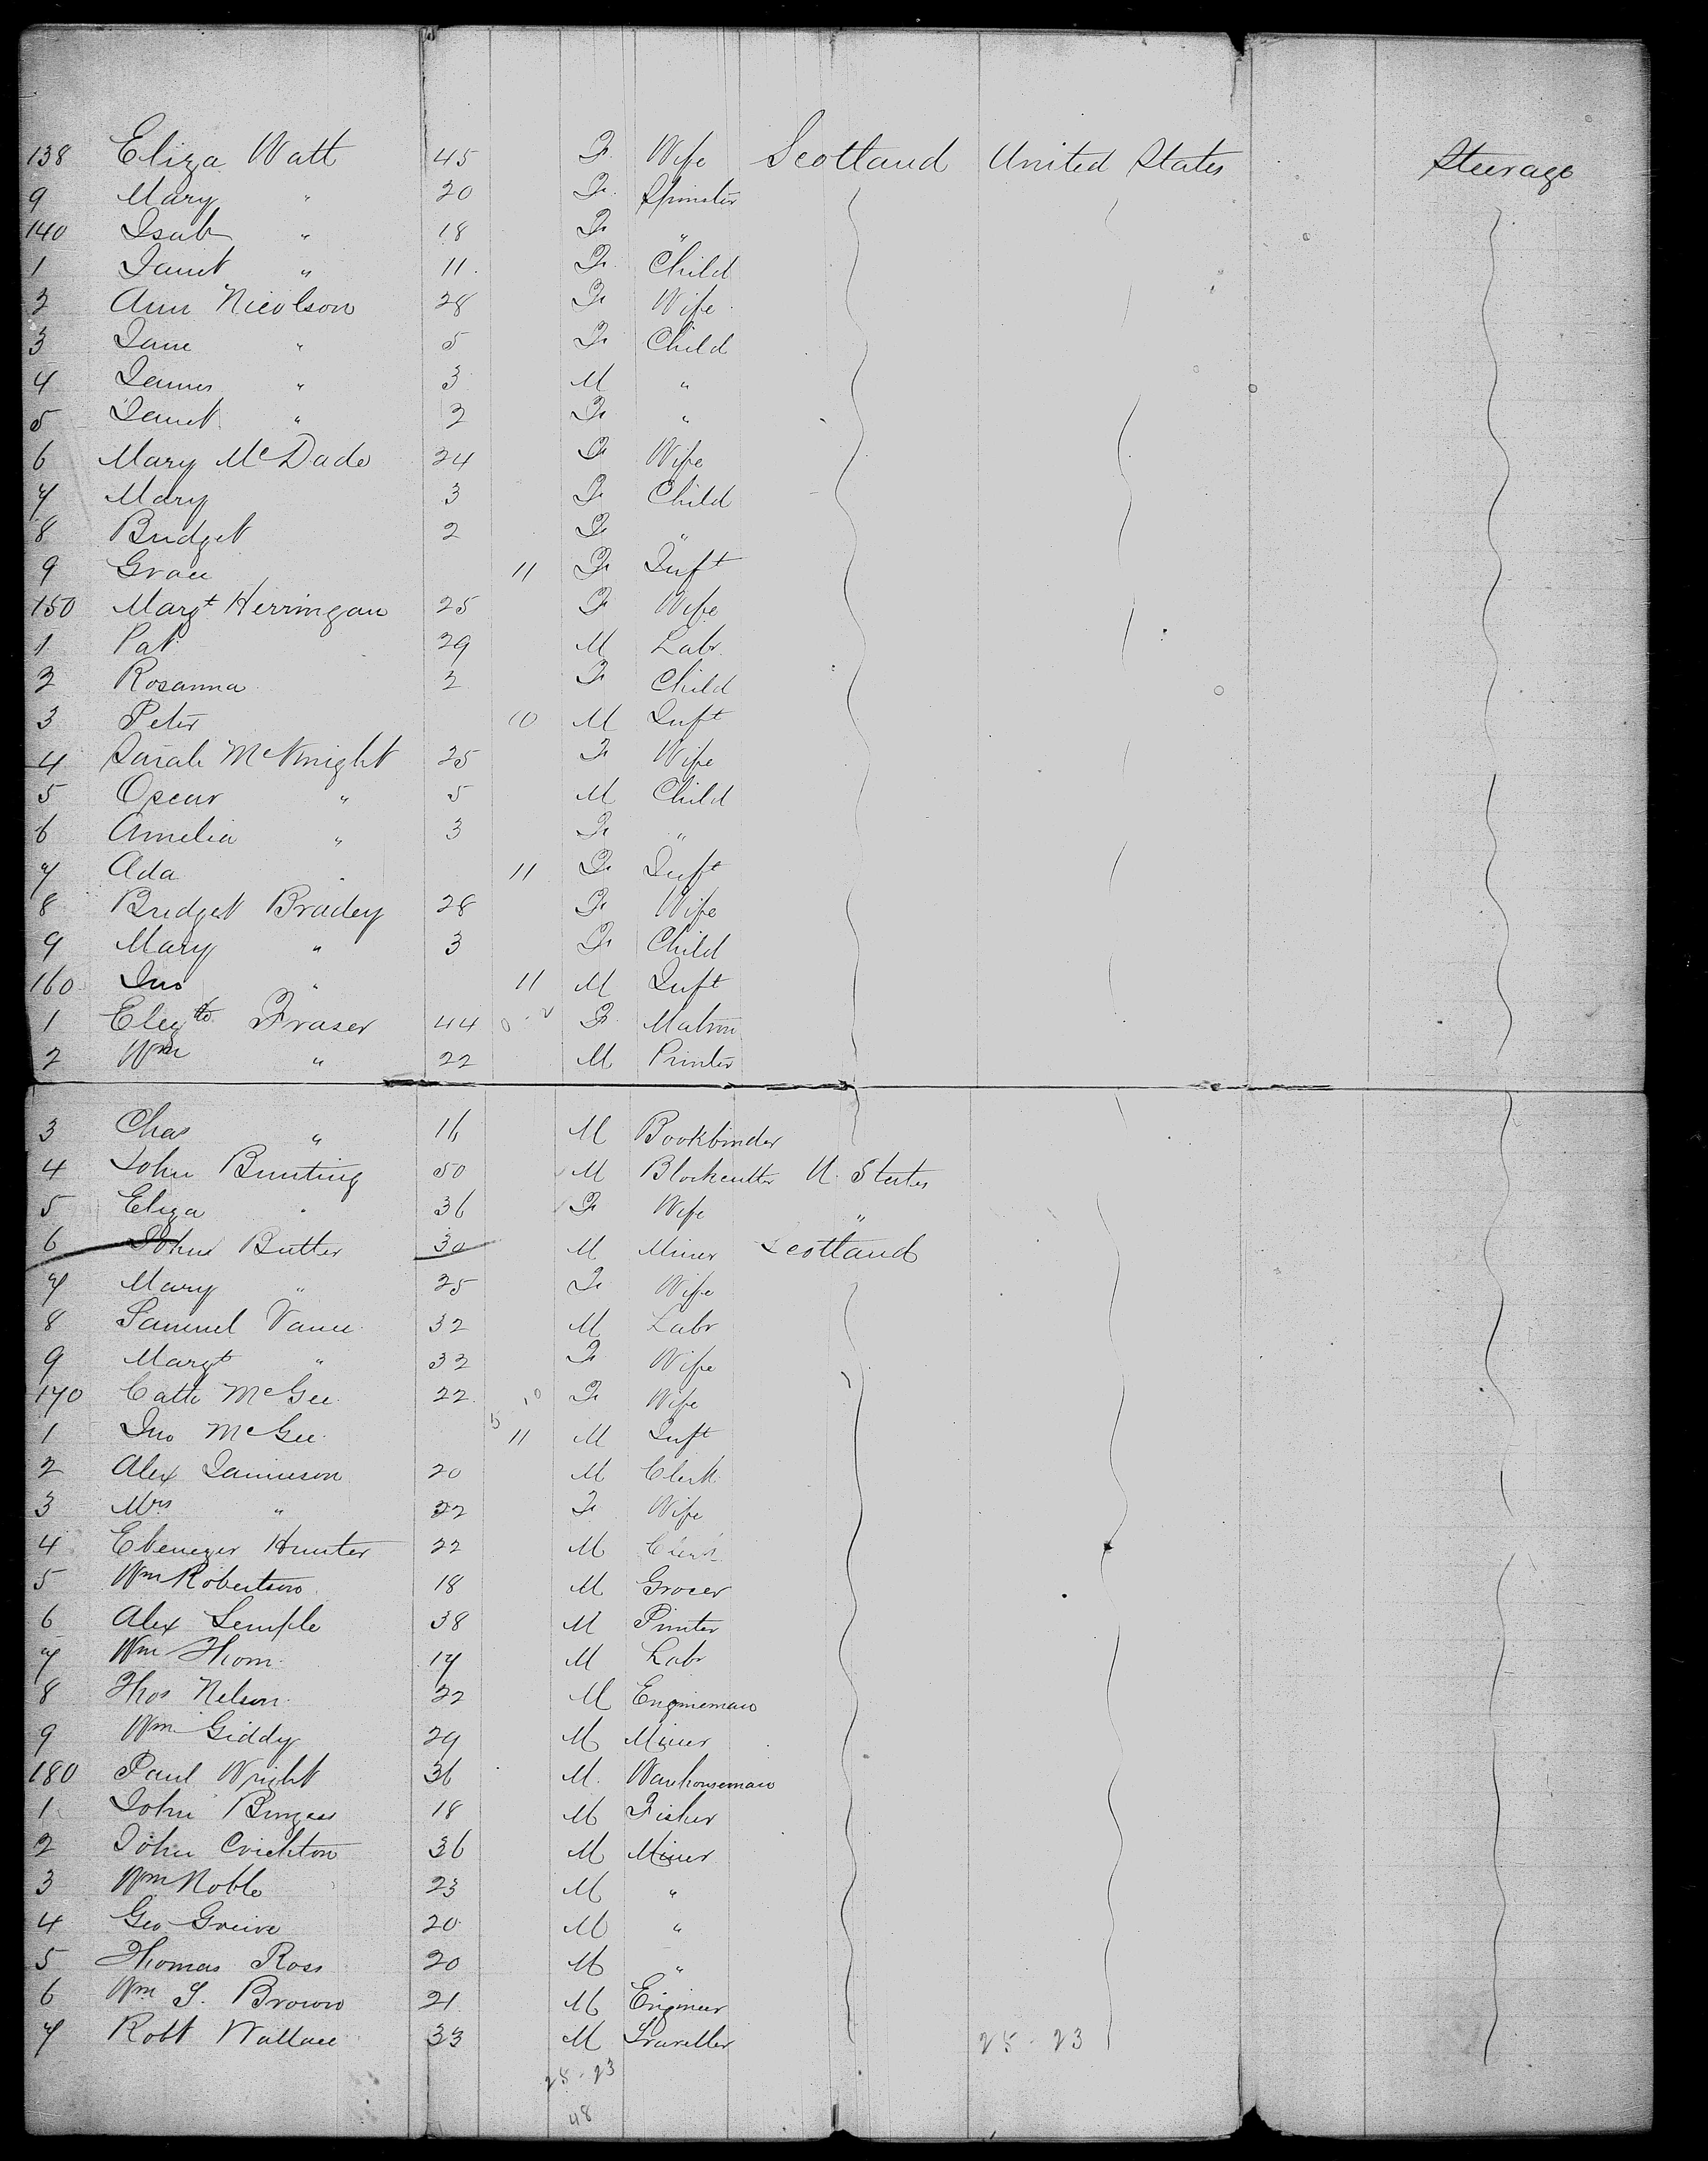 138 Eliza Watt 45 F. Wife Scotland United States Steerage
9 Mary " 20 F. Spinster
140 Isab " 18 F "
1 Janet " 11. F. Child
2 Ann Nicolson 28 F Wife
3 Jane " 5 F Child
4 James " 3 M "
5 Janet " 2 F "
6 Mary McDade 24 F Wife
7 Mary 3 F Child
8 Bridget 2 F "
9 Grace 11 F Inft
150 Margt Herringan 25 F Wife
1 Pat 29 M Labr.
2 Rosanna 2 F Child
3 Peter 10 M Inft
4 Sarah McKnight 25 F Wife
5 Oscar " 5 M Child
6 Amelia " 3 F "
7 Ada " 11 F Inft
8 Bridget Bradey 28 F Wife
9 Mary " 3 F Child
160 Jno " 11 M Inft
1 Elizth Fraser 44 F. Matron
2 Wm " 22 M Printer
3 Chas " 16 M Bookbinder
4 John Bunting 50 M Blockcutter U. States
5 Eliza " 36 F Wife "
6 John Butter 30 M Miner Scotland
7 Mary " 25 F Wife
8 Samuel Vance 32 M Labr
9 Margt " 32 F Wife
170 Cath McGee 22 F Wife
1 Jno McGee 11 M Inft
2 Alex Jamieson 20 M Clerk
3 Mrs " 22 F Wife
4 Ebenezer Hunter 22 M Clerk
5 Wm Robertson 18 M Grocer
6 Alex Semple 38 M Printer
7 Wm Thom 17 M Labr
8 Thos Nelson 22 M Engineman
9 Wm Giddy 29 M Miner
180 Paul Wright 36 M. Warehouseman
1 John Burgess 18 M Fisher
2 John Crichton 36 M Miner
3 Wm Noble 23 M "
4 Geo Greive 20 M "
5 Thomas Ross 20 M "
6 Wm S. Brown 21 M Engineer
7 Robt Wallace 33 M Traveller 25 - 23
25 - 23
48